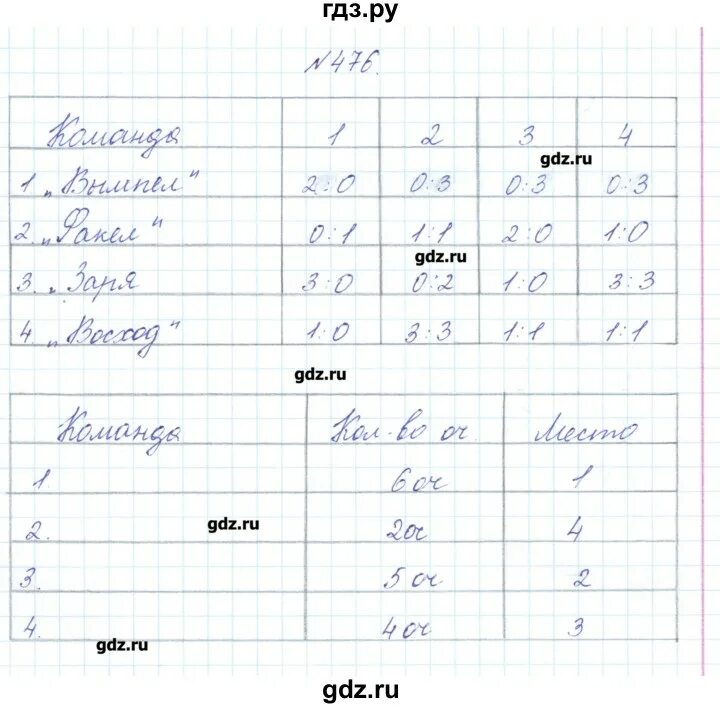 гдз.ру
№476.
Команда 1 2 3 4
gdz.ru
1 „Вымпел" 2:0 0:3 0:3 0:3
2. „Факел" 0:1 1:1 2:0 1:0
gdz.ru
3. „Заря 3:0 0:2 1:0 3:3
4. „Восход" 1:0 3:3 1:1 1:1
gdz.ru
Команда Кол-во оч. Место
1. 6 оч 1
2. gdz.ru 2оч 4
3. 5 оч 2
4. 4 оч 3
gdz.ru
gdz.ru